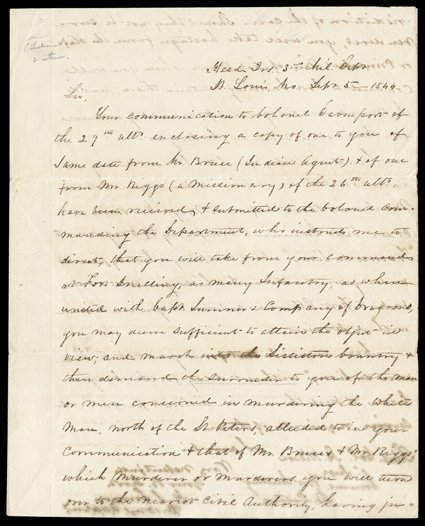 Head Qrs. 3rd Mil. Dept.
St. Louis, Mo. Sept. 5. 1844
Sir,
Your communication to Colonel Davenport of
the 29th ulto. enclosing a copy of one to you of
same date from Mr. Bruce (Indian Agent), & of one
from Mr. Riggs (a Missionary) of the 26th ulto.
have been received, & submitted to the Colonel Com-
manding the Department, who instructs me to
direct, that you will take from your Command
at Fort Snelling, as many Infantry, as when
united with Capt. Sumner's Company of Dragoons,
you may deem sufficient to attain the object in
view; and march into the Sissiton Country &
then demand the surrender to you of the man
or men concerned in murdering the White
Man, north of the St. Peters, alluded to in your
Communication & that of Mr. Bruce & Mr. Riggs,
which Murderer or Murderers you will turn
over to the nearest Civil Authority, having